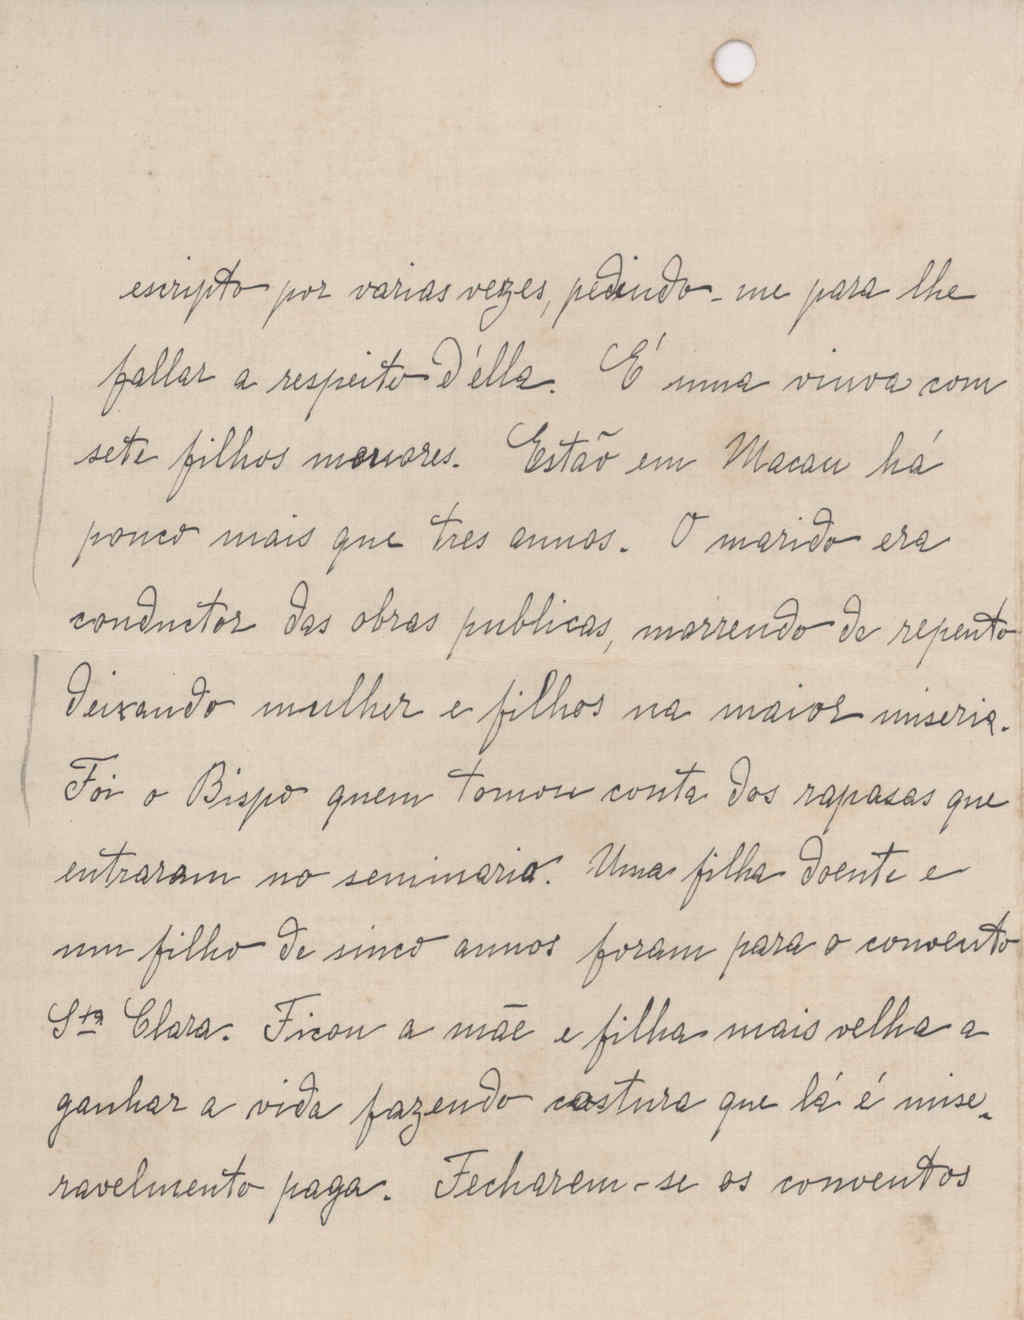 escripto por varias vezes, pedindo-me para lhe
fallar a respeito d'élla. É uma viuva com
sete filhos menores. Estão em Macau há
pouco mais que tres annos. O marido era
conductor das obras publicas, morrendo de repente
deixando mulher e filhos na maior miseria.
Foi o Bispo quem tomou conta dos rapases que
entraram no seminario. Uma filha doente e
um filho de sinco annos foram para o convento
Sta Clara. Ficou a mãe e filha mais velha a
ganhar a vida fazendo costura que lá é mise-
ravelmente paga. Fecharem-se os conventos